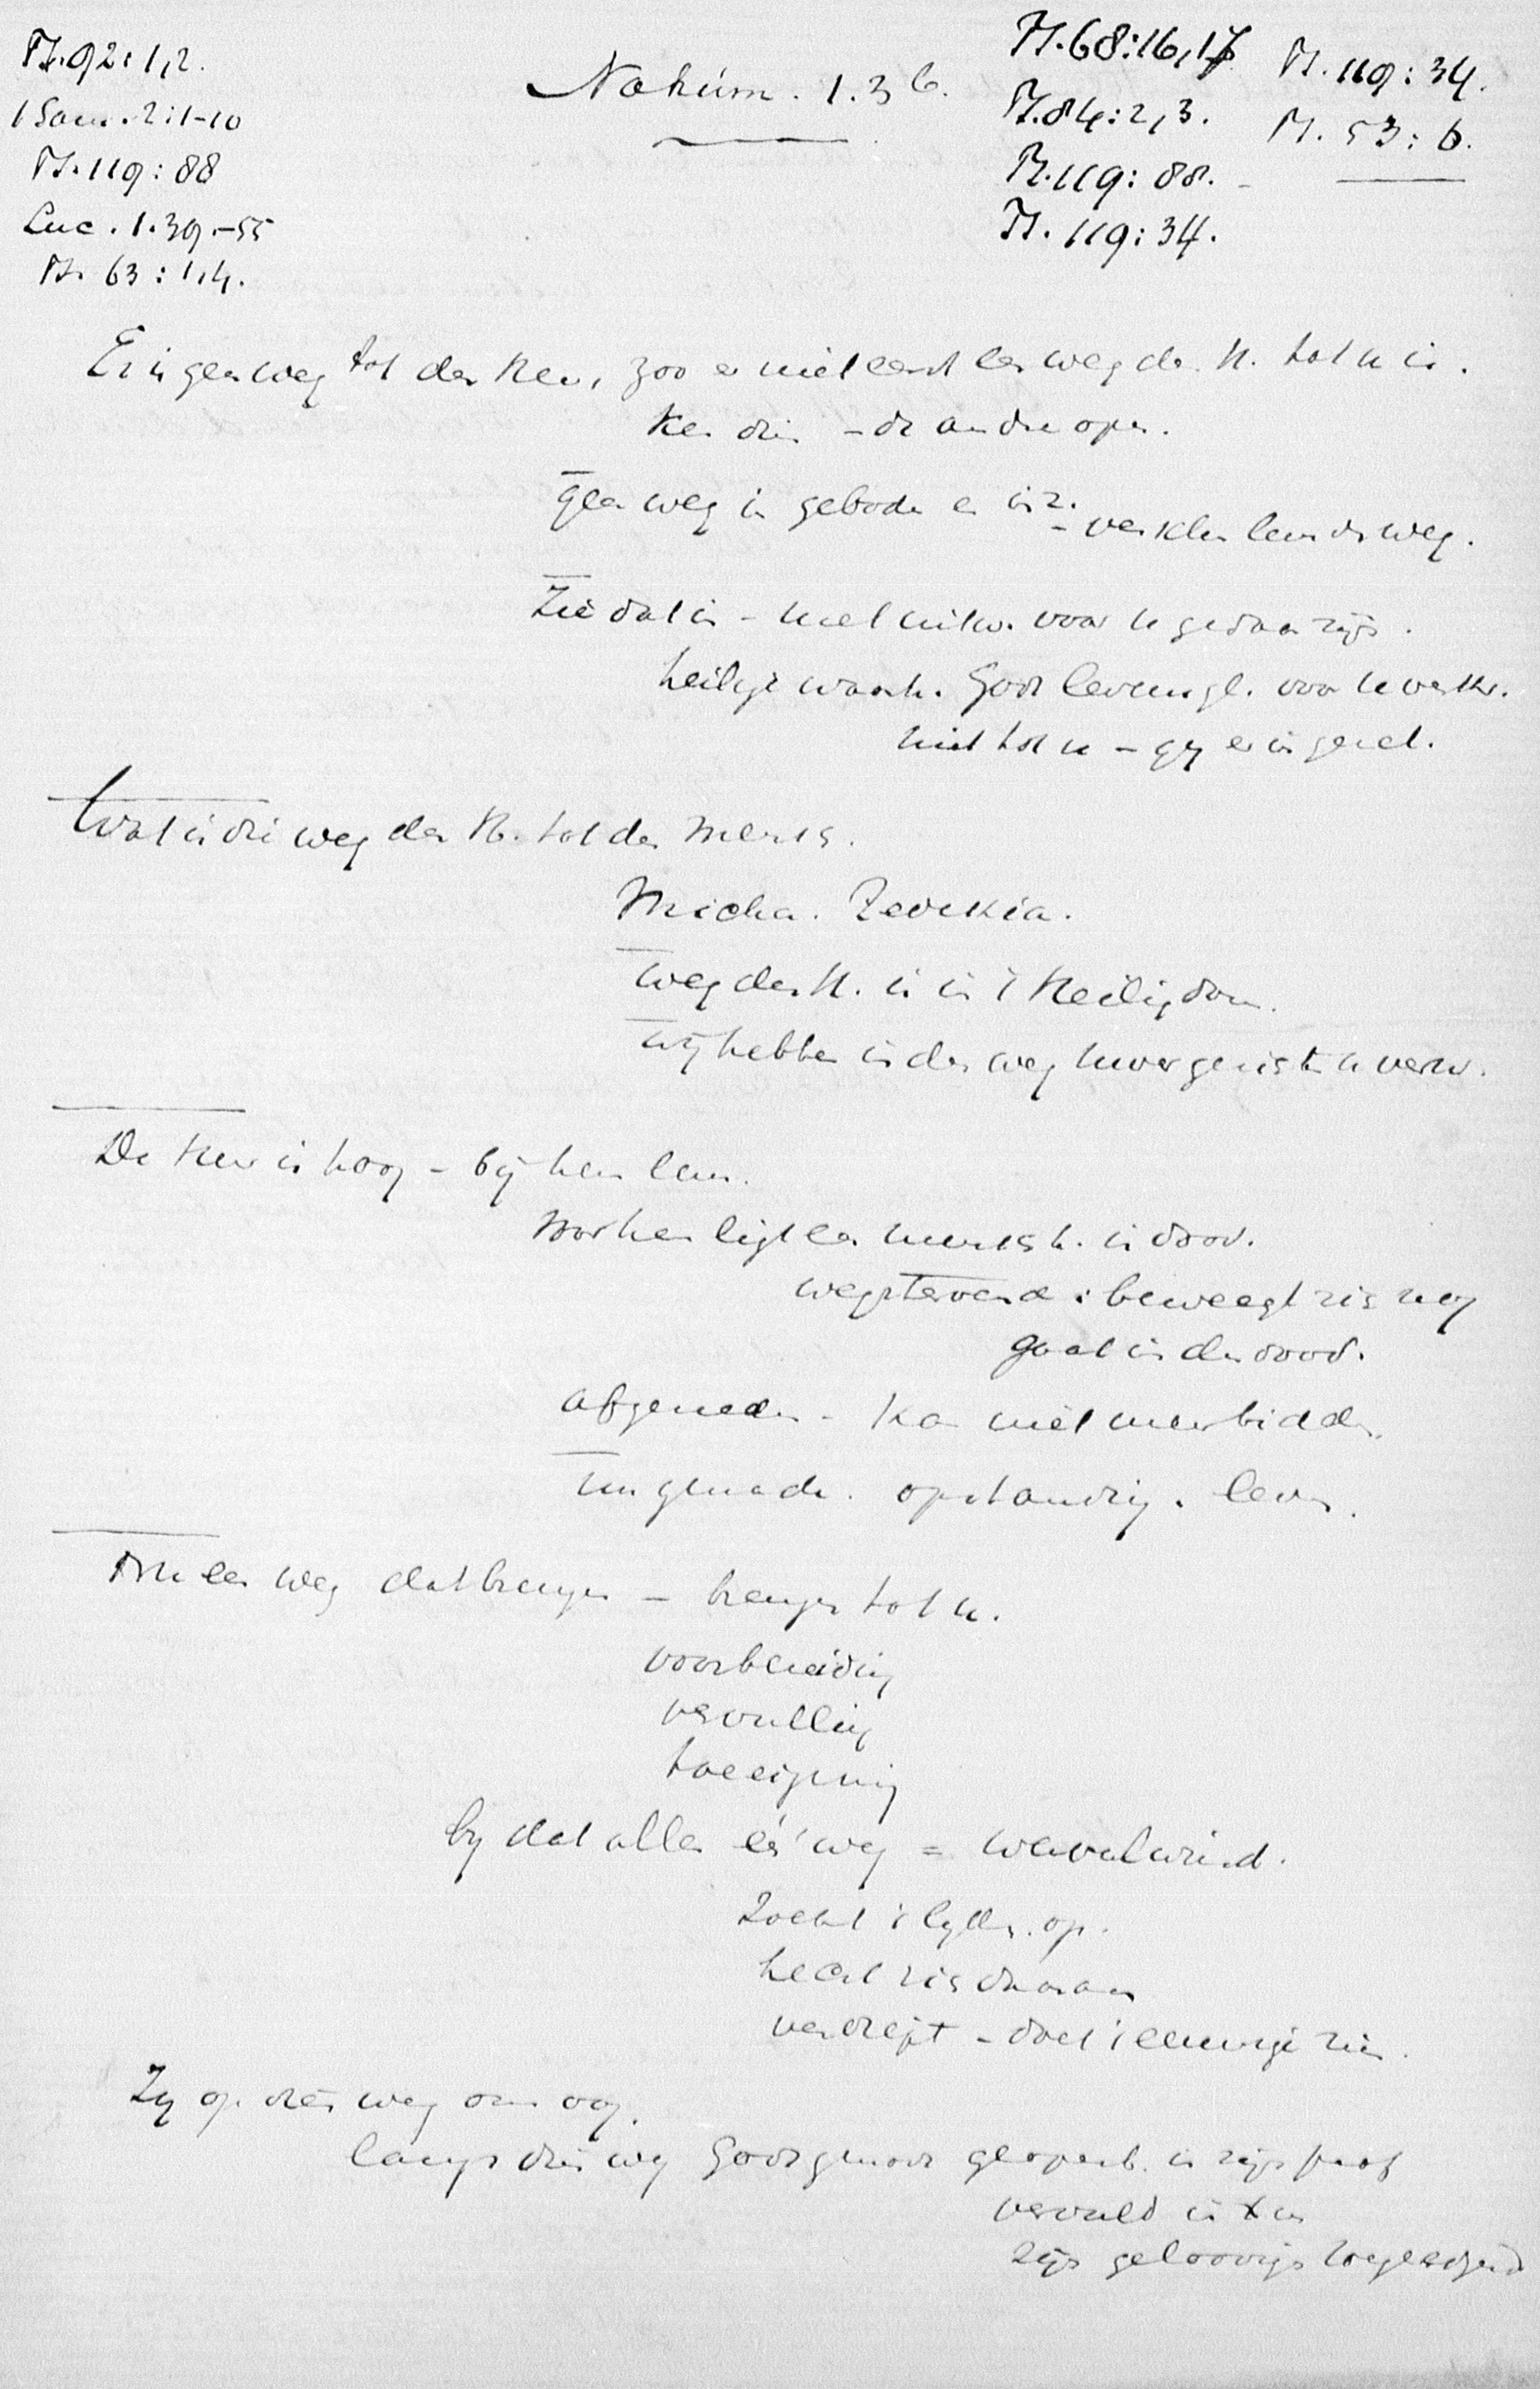 Ps. 92:1,2.
1 Sam. 2:1-10
Ps. 119:88
Luc. 1.39.-55
Ps. 63:1,4.
Nahum. 1.3b.
Ps. 68:16,17
Ps. 84:2,3.
Ps. 119:88.-
Ps. 119:34.
Ps. 119:34.
Ps. 53:6.
Er is geen weg tot den Heer, zoo er niet eerst een weg des H. tot u is.
Ken die - de andre open.
geen weg in geboden en inz. - verklaar leven den weg.
Zie dat in - voor u gedaan zijn.
heilige waarh. Gods voor u
niet tot u - gij er in
Wat is die weg des H. tot den mensch.
Micha. Zedekia.
weg des H. is in 't Heiligdom.
wij hebben in den weg uwer gerichten u verw.
De Heer is hoog - bij hem leven.
Voor hem ligt een mensch. in dood.
wegstervend: beweegt zich nog
gaat in den dood.
afgesneden - kan niet meer bidden.
genade. opstanding. leven.
Nu een weg dat brengen - brengen tot u.
voorbereiding
vervulling
toeeigening
by dat alles één weg = wervelwind.
Zoekt 't op.
hecht zich daaraan
- doet 't eeuwige zien.
Zij op dien weg ons oog.
langs dien weg Gods genade geopenb. in zijn prof
vervuld in Xus
zijn geloovigen toegeeigend